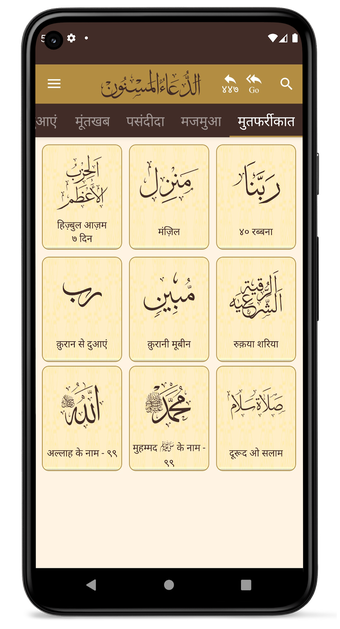 الدُّعَاءُ الْمَسْنُون
४४७ Go
ुआएं मूंतखब पसंदीदा मजमुआ मुतफर्रीकात
الحزب الأعظم
हिज़्बुल आज़म
७ दिन
منزل
मंज़िल
ربنا
४० रब्बना
رب
क़ुरान से दुआएं
مبين
क़ुरानी मूबीन
الرقية الشرعية
रुक़या शरिया
الله
अल्लाह के नाम - ९९
محمد
मुहम्मद ﷺ के नाम -
९९
صلاة سلام
दूरूद ओ सलाम